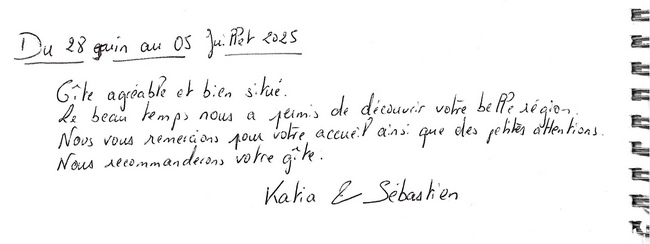 Du 28 juin au 05 Juillet 2025
Gîte agréable et bien situé.
Le beau temps nous a permis de découvrir votre belle région.
Nous vous remercions pour votre accueil ainsi que des petites attentions.
Nous recommanderons votre gîte.
Katia & Sébastien